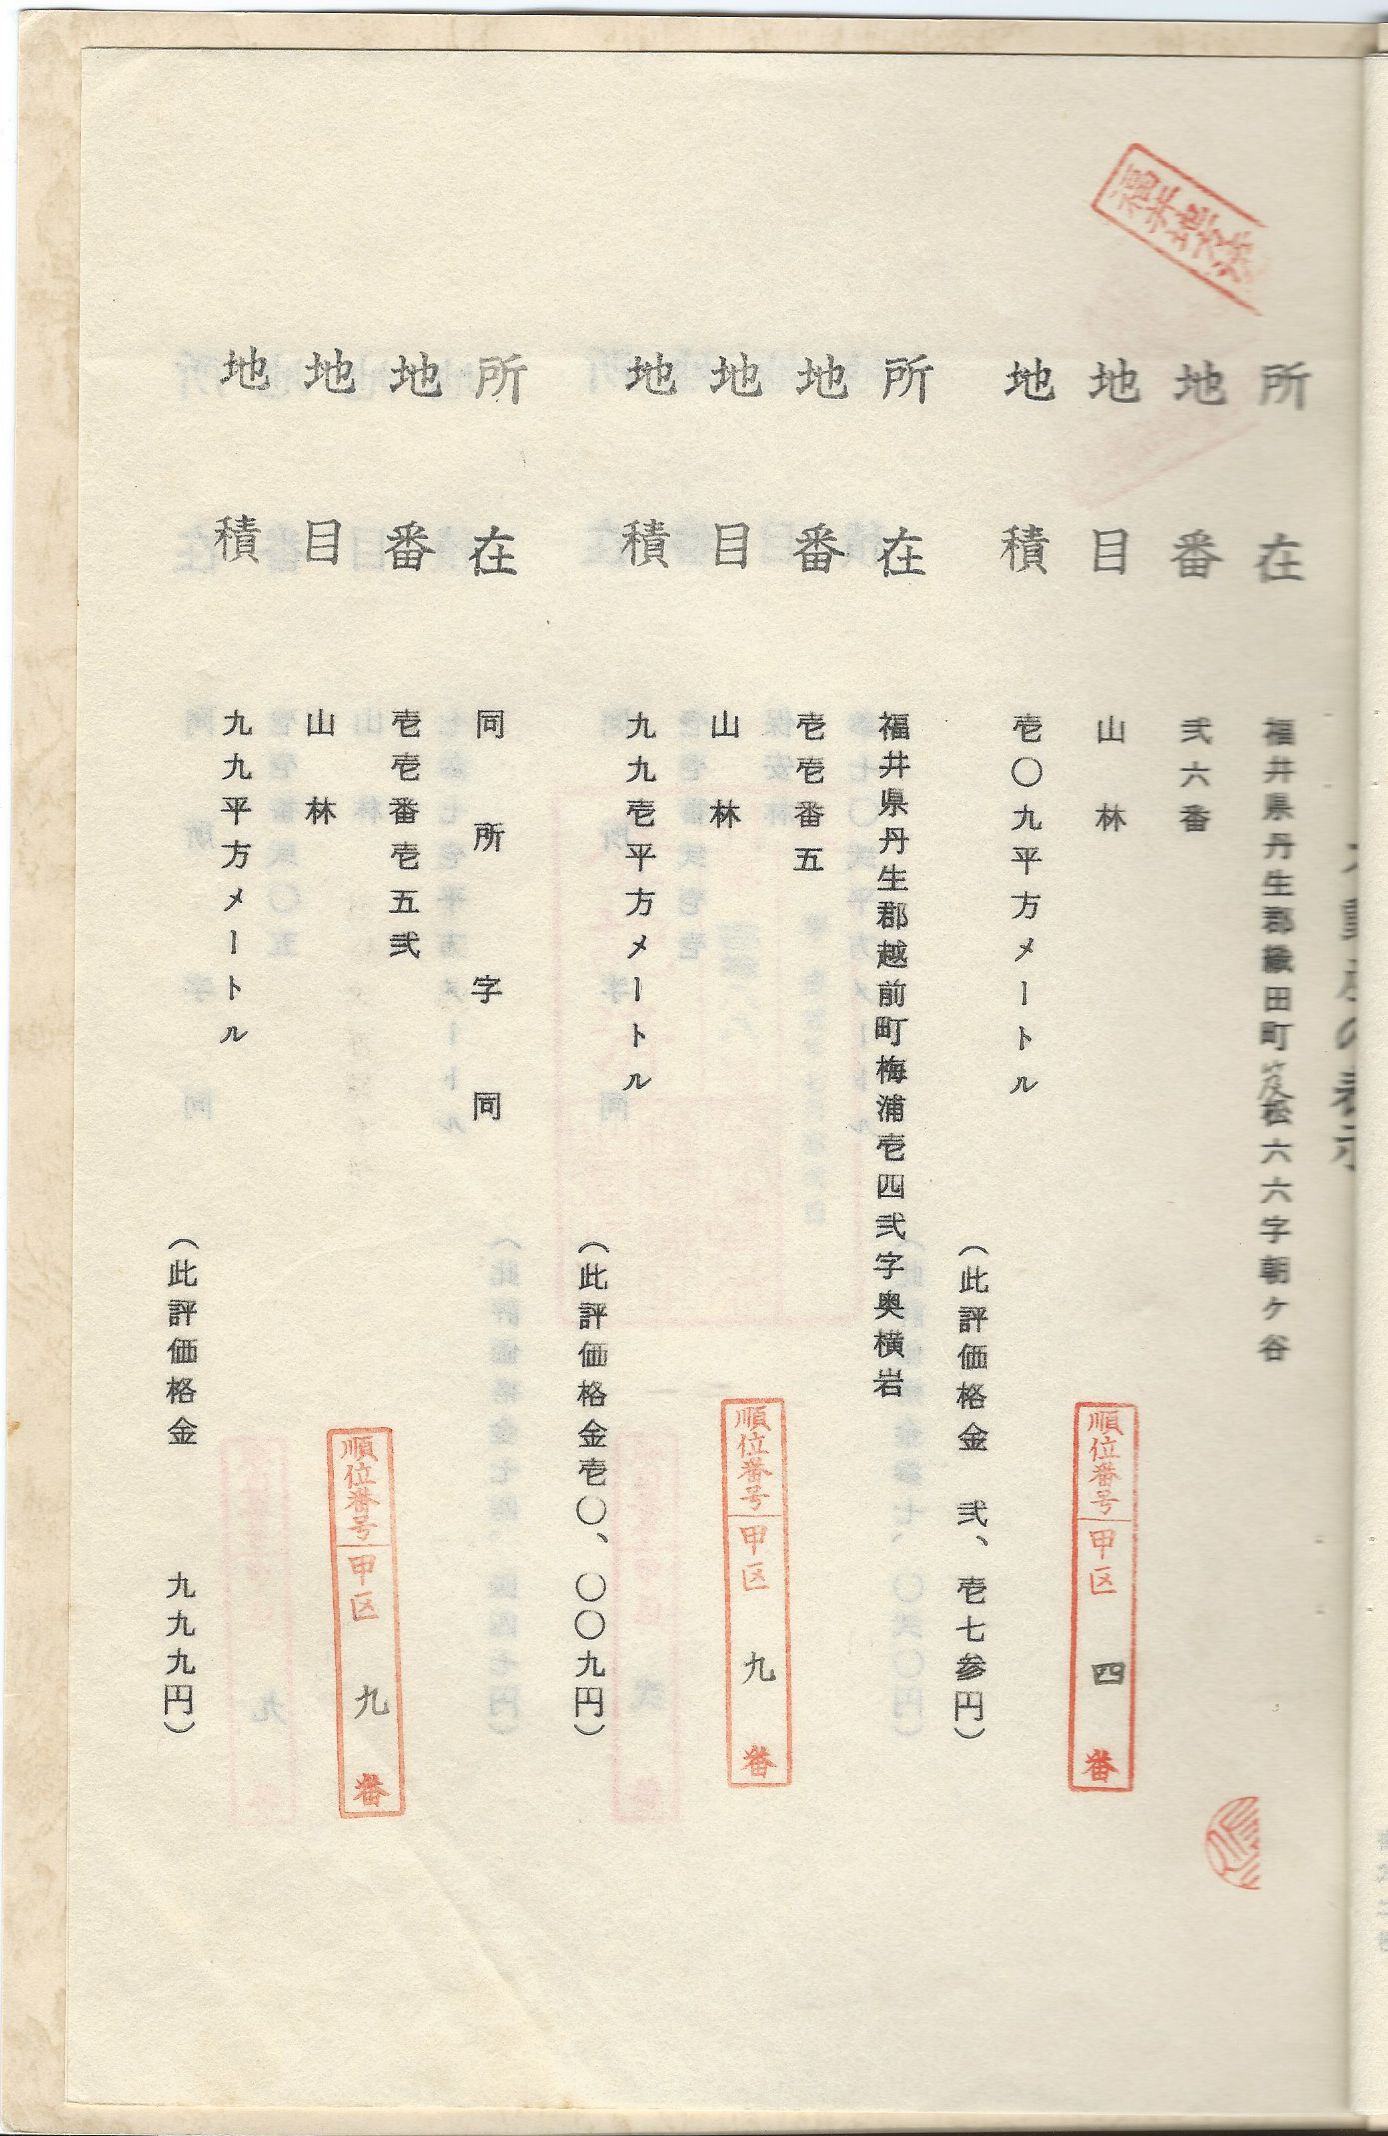 不動産の表示
所在 福井県丹生郡織田町笈松六六字朝ケ谷
地番 弐六番
地目 山林
地積 壱〇九平方メートル
（此評価格金 弐、壱七参円）
順位番号 甲区 四 番
所在 福井県丹生郡越前町梅浦壱四弐字奥横岩
地番 壱壱番五
地目 山林
地積 九九壱平方メートル
（此評価格金壱〇、〇〇九円）
順位番号 甲区 九 番
所在 同所 字同
地番 壱壱番壱五弐
地目 山林
地積 九九平方メートル
（此評価格金 九九九円）
順位番号 甲区 九 番
福井地方法